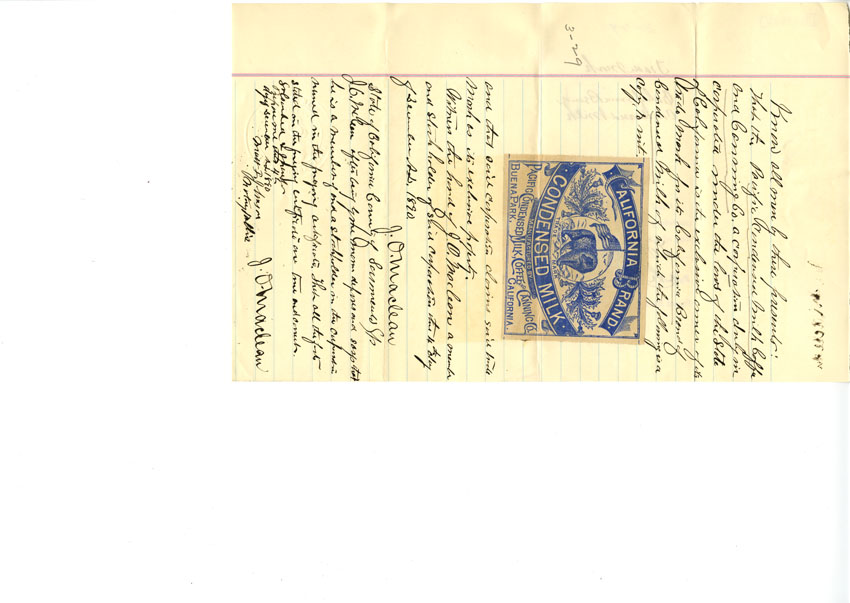 3-29
Know all men by these presents:
That the Pacific Condensed Milk Coffee
and Canning Co. a corporation duly in
corporated under the laws of the State
of California is the exclusive owner of its
Trade Mark for its California Brand of
Condensed Milk of which the following is a
copy to wit:
CALIFORNIA BRAND
TRADE MARK
CONDENSED MILK
PACIFIC CONDENSED MILK COFFEE & CANNING CO.
BUENA PARK, CALIFORNIA.
and that said corporation claims said trade
mark as its exclusive property.
Witness the hand of J. O. Maclean a member
and stockholder of said corporation this 4 day
of December A.D. 1890
J. O. Maclean
State of California County of Sacramento S/s
J. O. Maclean after being by me sworn deposes and says that
he is a member of and a stockholder in the corporation
named in the foregoing certificate. That all the facts
stated in the foregoing certificate are true and correct.
Subscribed & sworn
before me this 4
day December 1890
Notary Public
J. O. Maclean